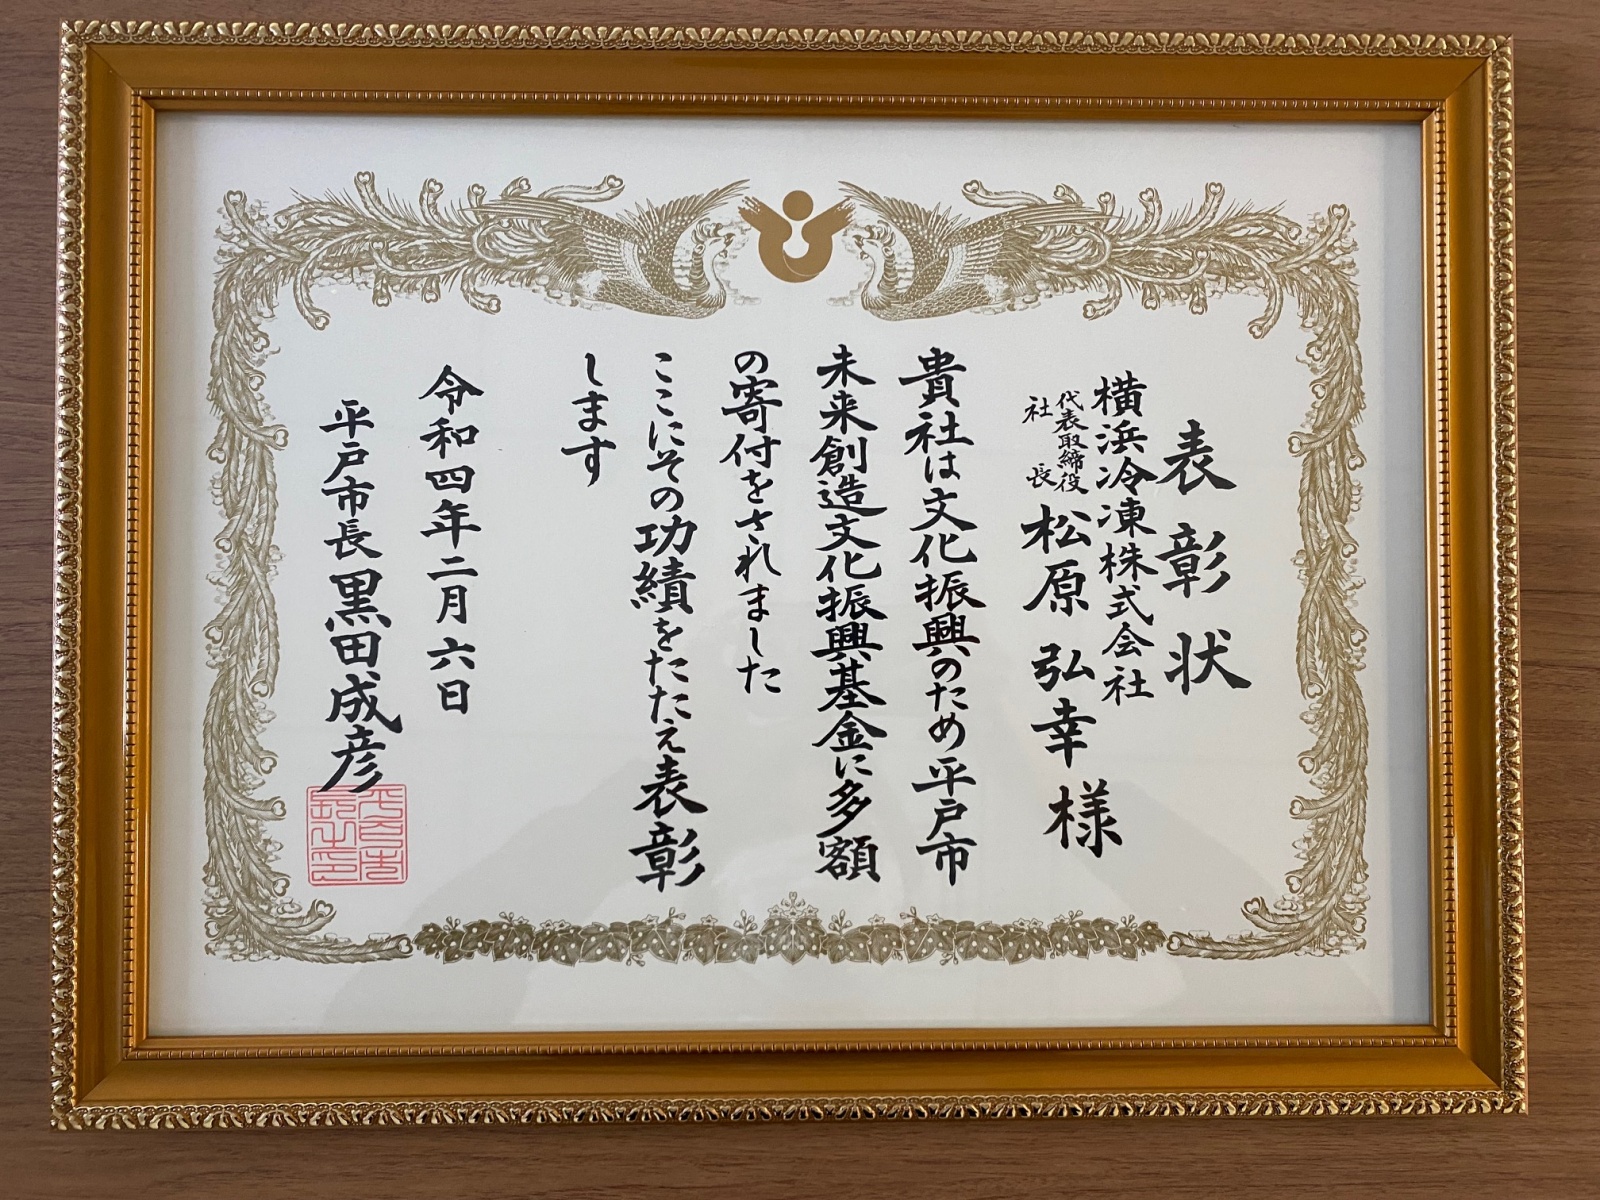 表彰状
横浜冷凍株式会社
代表取締役
社長
松原弘幸様
貴社は文化振興のため平戸市
未来創造文化振興基金に多額
の寄付をされました
ここにその功績をたたえ表彰
します
令和四年二月六日
平戸市長黒田成彦
平戸市
長之印